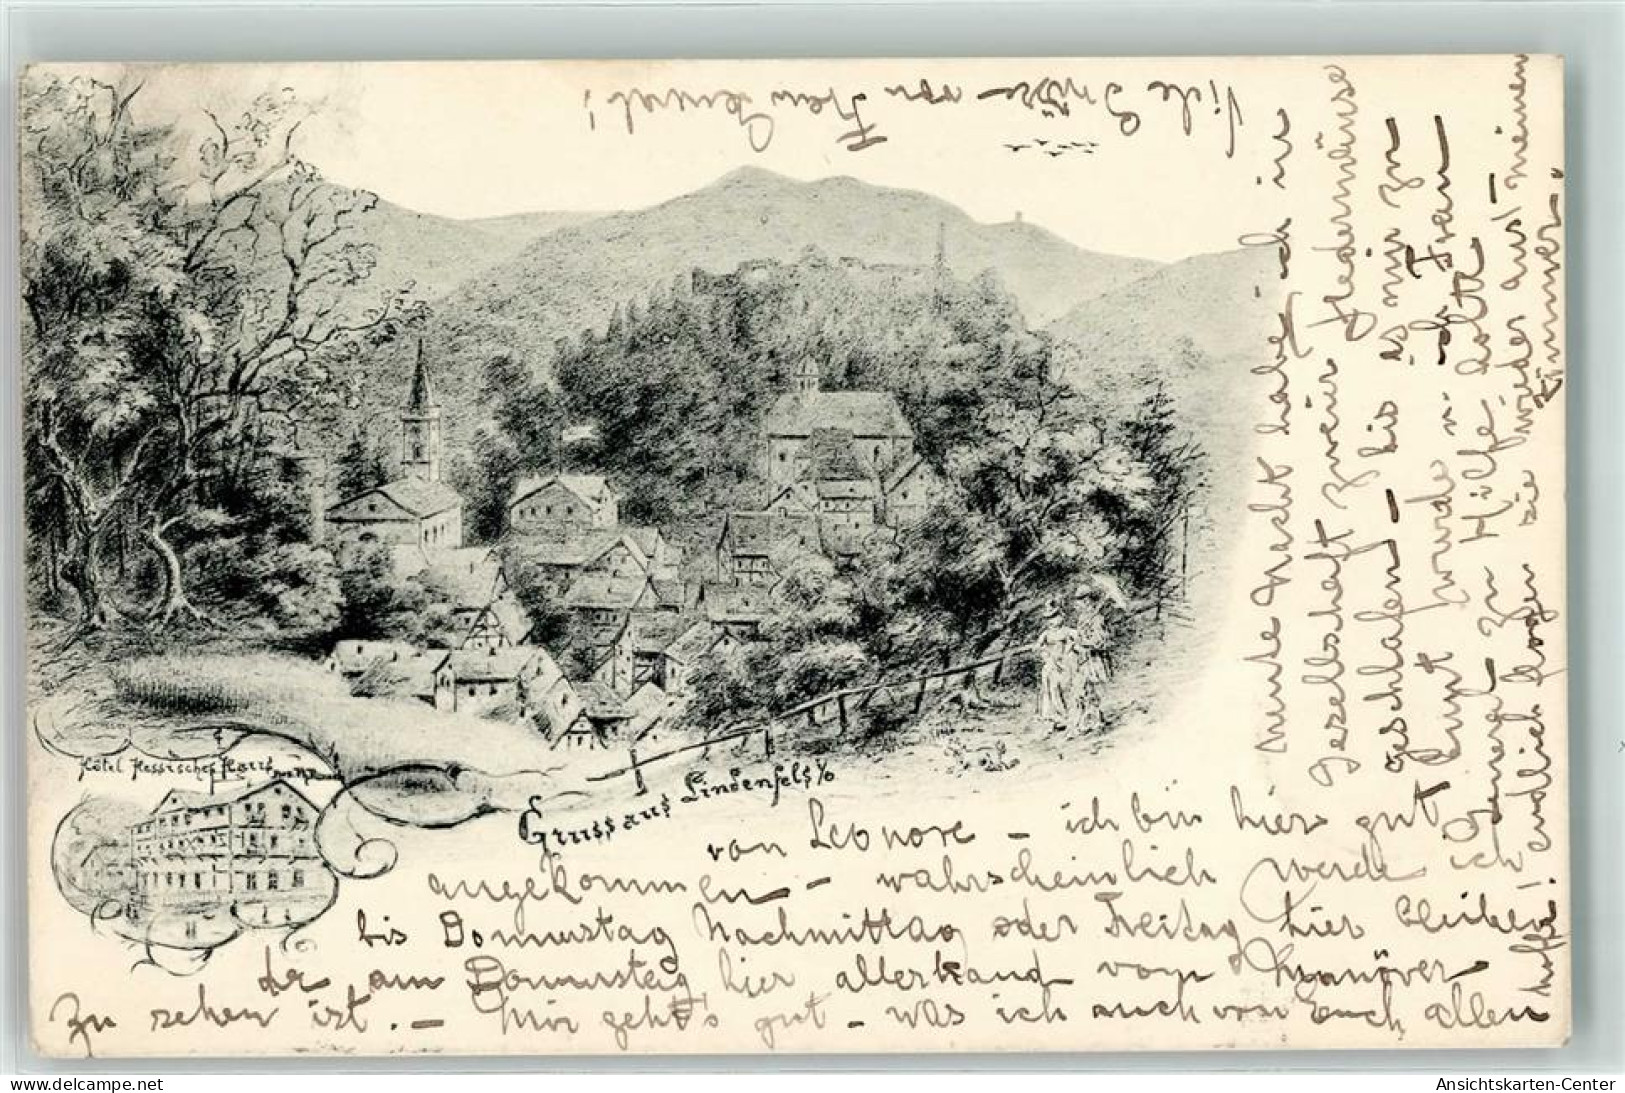 Viele Grüsse von Frau
Hôtel Hessisches Haus
Gruss aus Lindenfels i/O
von Leonore – ich bin hier gut
angekommen – wahrscheinlich werde ich
bis Donnerstag Nachmittag oder Freitag hier bleiben
da am Donnerstag hier allerhand vom Manöver
zu sehen ist. – Mir geht's gut – was ich auch von Euch allen
hoffe!
heute Nacht habe ich in
Gesellschaft zweier Fledermäuse
geschlafen – bis es mir zu
bunt wurde u. ich Frau
zu Hilfe holte
endlich flogen sie wieder aus meinem
Zimmer
Ansichtskarten-Center